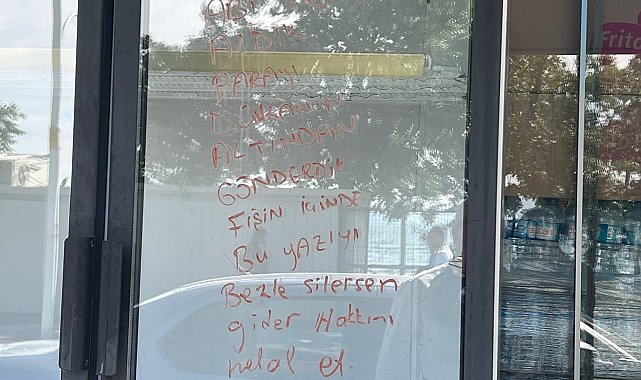 ABİ
ALDIK
PARAYI
DÜKKANIN
ALTINDAN
GÖNDERDİK
FİŞİN İÇİNDE
BU YAZIYI
Bezle silersen
gider Hakkını
helal et.
Frito